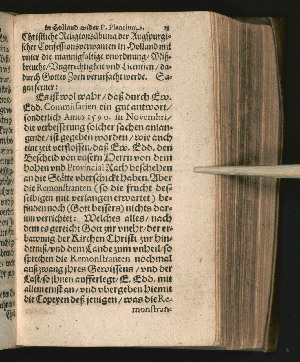 in Holland wider P. Plancium.
Christliche Religionsübung der Augspurgi-
scher Confessionsverwanten in Holland mit
vnter die mannigfaltige vnordnung / Miß-
breuche / Vngerechtigkeit vnd Licentien / da-
durch Gottes Zorn verursacht werde. Sa-
gen ferner:
Es ist wol wahr / daß durch Ew.
Edd. Commissarien ein gut antwort /
sonderlich Anno 1590. in Novembri,
die verbesserung solcher sachen anlan-
gende / ist gegeben worden / wie auch
eine zeit verflossen / daß Ew. Edd. den
Bescheid von vnsern Herrn von dem
hohen vnd Provincial Rath beschehen
an die Städte vberschickt haben. Aber
die Remonstranten (so die frucht des-
selbigen mit verlangen erwartet) be-
finden noch (Gott bessers) nichts dar-
inn verrichtet: Welches alles / nach
dem es gereicht Gott zur vnehr / der er-
bawung der Kirchen Christi zur hin-
dernuß / vnd dem Lande zum vnheil / so
sprechen die Remonstranten nochmal
auß zwang ihres Gewissens / vnd der
Last / so ihnen aufferlegt / E. Edd. mit
allem ernst an / vnd vbergeben hiemit
die Copeyen deß jenigen / was die Re-
monstran-